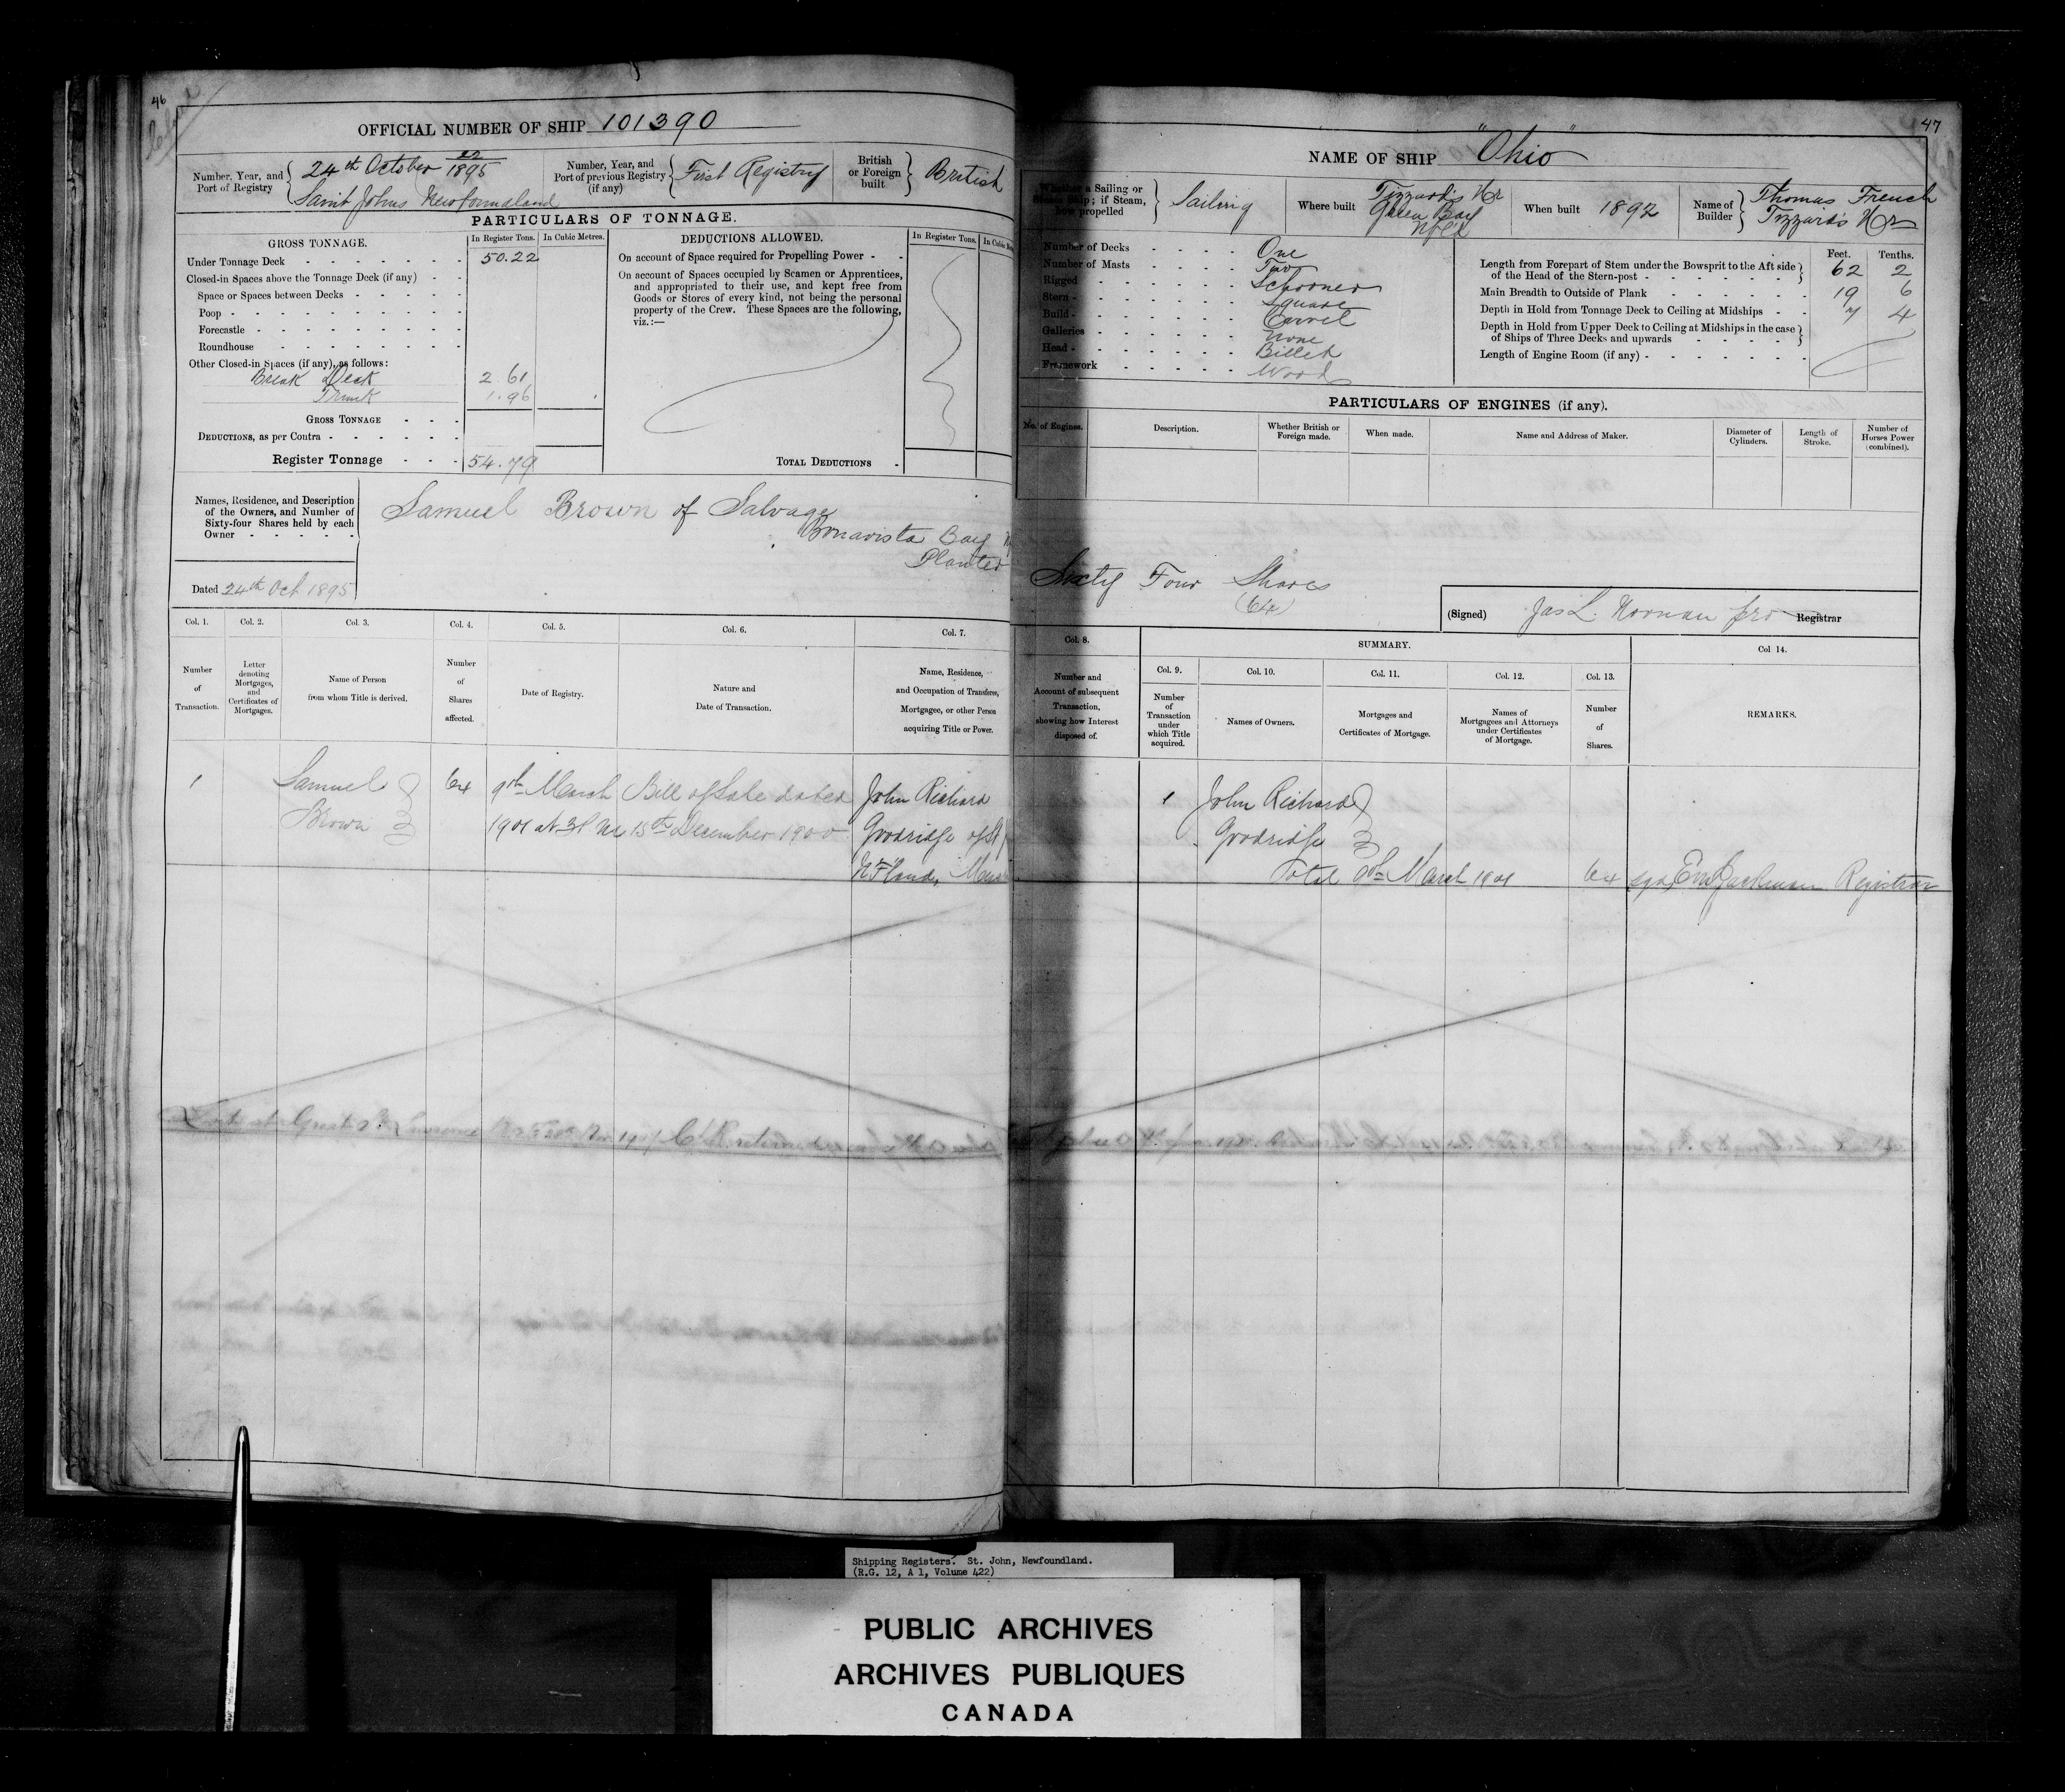 46
OFFICIAL NUMBER OF SHIP 101390
Number, Year, and Port of Registry
24th October 22/1895
Saint Johns Newfoundland
Number, Year, and Port of previous Registry (if any)
First Registry
British or Foreign built
British
PARTICULARS OF TONNAGE.
GROSS TONNAGE.
In Register Tons.
In Cubic Metres.
Under Tonnage Deck 50.22
Closed-in Spaces above the Tonnage Deck (if any)
Space or Spaces between Decks
Poop
Forecastle
Roundhouse
Other Closed-in Spaces (if any), as follows:
Break Deck 2 61
Trunk 1.96
GROSS TONNAGE
DEDUCTIONS, as per Contra
Register Tonnage 54.79
DEDUCTIONS ALLOWED.
In Register Tons.
On account of Space required for Propelling Power
On account of Spaces occupied by Seamen or Apprentices,
and appropriated to their use, and kept free from
Goods or Stores of every kind, not being the personal
property of the Crew. These Spaces are the following,
viz.:—
TOTAL DEDUCTIONS
Names, Residence, and Description
of the Owners, and Number of
Sixty-four Shares held by each
Owner
Samuel Brown of Salvage
Bonavista Bay
Planter
Dated 24th Oct 1895
Col. 1. Col. 2. Col. 3. Col. 4. Col. 5. Col. 6. Col. 7.
Number of Transaction.
Letter denoting Mortgages, and Certificates of Mortgages.
Name of Person from whom Title is derived.
Number of Shares affected.
Date of Registry.
Nature and Date of Transaction.
Name, Residence, and Occupation of Transferee, Mortgagee, or other Person acquiring Title or Power.
1 Samuel 64 9th March Bill of Sale dated John Richard
Brown 1901 at 3 P.M. 15th December 1900 Goodridge of St
NFland,
Lost at Great St Lawrence
47
NAME OF SHIP "Ohio"
Whether a Sailing or Steam Ship; if Steam, how propelled
Sailing
Where built
Tizzard's Hr
Green Bay
Nfld
When built 1892
Name of Builder
Thomas French
Tizzard's Hr
Number of Decks One
Number of Masts Two
Rigged Schooner
Stern Square
Build Carvel
Galleries None
Head Billet
Framework Wood
Feet. Tenths.
Length from Forepart of Stem under the Bowsprit to the Aft side of the Head of the Stern-post 62 2
Main Breadth to Outside of Plank 19 6
Depth in Hold from Tonnage Deck to Ceiling at Midships 7 4
Depth in Hold from Upper Deck to Ceiling at Midships in the case of Ships of Three Decks and upwards
Length of Engine Room (if any)
PARTICULARS OF ENGINES (if any).
No. of Engines.
Description.
Whether British or Foreign made.
When made.
Name and Address of Maker.
Diameter of Cylinders.
Length of Stroke.
Number of Horses Power (combined).
Sixty Four Shares
(64)
(Signed) Jas L. Noonan pro Registrar
Col. 8.
SUMMARY.
Col 14.
Col. 9. Col. 10. Col. 11. Col. 12. Col. 13.
Number and Account of subsequent Transaction, showing how Interest disposed of.
Number of Transaction under which Title acquired.
Names of Owners.
Mortgages and Certificates of Mortgage.
Names of Mortgagees and Attorneys under Certificates of Mortgage.
Number of Shares.
REMARKS.
1 John Richard
Goodridge
Total 9th March 1901 64 sgd Jackman Registrar
Shipping Registers. St. John, Newfoundland.
(R.G. 12, A 1, Volume 422)
PUBLIC ARCHIVES
ARCHIVES PUBLIQUES
CANADA